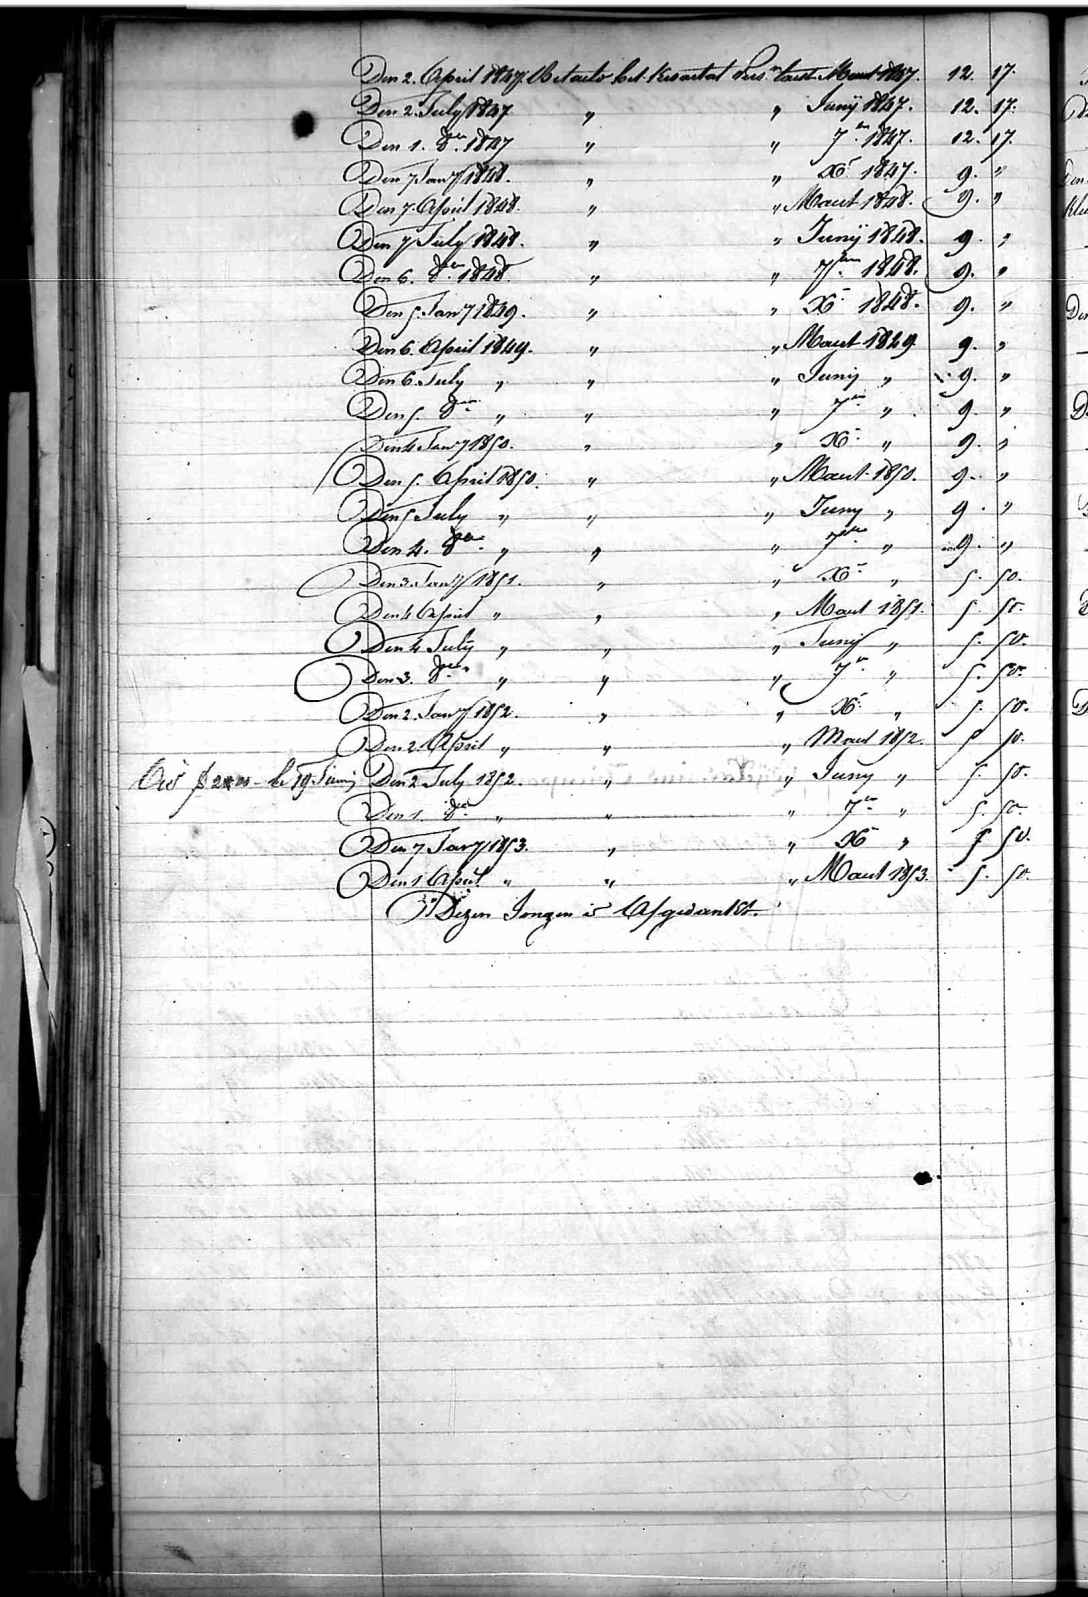 Den 2. April 1847. Betaelt het Kwartal Pers. laest. Maart 1847. 12. 17.
Den 2. July 1847 " " Junÿ 1847. 12. 17.
Den 1. 8er. 1847 " " 7er. 1847. 12. 17.
Den 7 Janry 1848. " " Xr 1847. 9. "
Den 7. April 1848. " " Maart 1848. 9. "
Den 7 July 1848. " " Junÿ 1848. 9. "
Den 6. 8er. 1848. " " 7ber. 1848. 9. "
Den 5. Janry 1849. " " Xr 1848. 9. "
Den 6. April 1849. " " Maart 1849 9. "
Den 6. July " " " Junij " 9. "
Den 5. 8er. " " " 7er. " 9. "
Den 4 Janry 1850. " " Xr " 9. "
Den 5. April 1850. " " Maart. 1850. 9. "
Den 5 July " " " Juny " 9. "
Den 4. 8er. " " " 7ber. " 9. "
Den 3. Janry 1851. " " Xr " 5. 50.
Den 4 April " " " Maart 1851. 5. 50.
Den 4 July " " " Junÿ " 5. 50.
Den 3. 8er. " " " 7er. " 5. 50.
Den 2. Janry 1852. " " Xr. " 5. 50.
Den 2 April " " " Maart 1852. 5 50.
le 19 Den 2 July 1852. " " Juny " 5. 50.
Den 1. 8er. " " " 7er " 5. 50.
Den 7 Janry 1853. " " Xr " 5 50.
Den 1 April " " " Maart 1853. 5. 50.
Dezen Jongen is